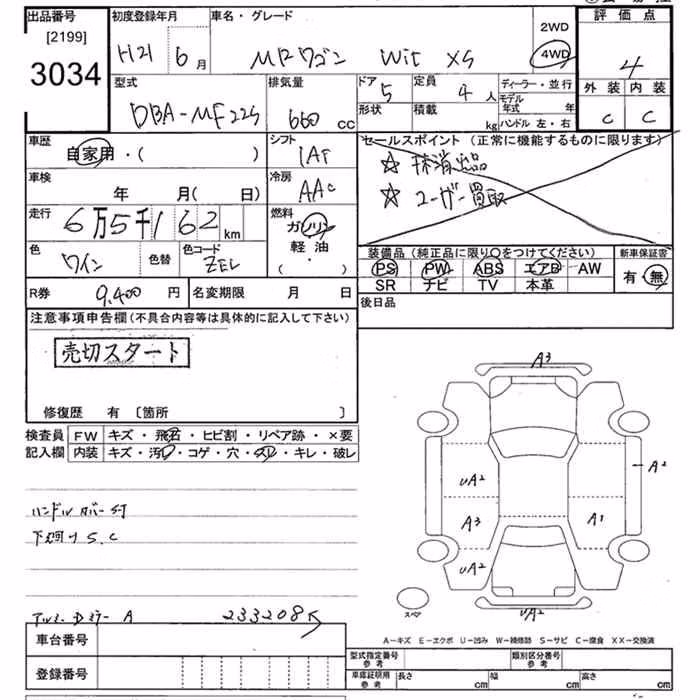 出品番号
[2199]
3034
初度登録年月
H21 6月
車名・グレード
MRワゴン Wit XS
2WD
4WD
評価点
4
外装 内装
C C
型式
DBA-MF22S
排気量
660 cc
ドア
5
定員
4人
形状
積載
kg
ディーラー・並行
モデル年式 年
ハンドル 左・右
車歴
自家用・( )
シフト
IAT
セールスポイント(正常に機能するものに限ります)
☆ 抹消出品
☆ ユーザー買取
車検
年 月( 日)
冷房
AAC
走行
6万5千162km
燃料
ガソリン
軽・油
・( )
色
ワイン
色替
色コード
ZEL
装備品(純正品に限り〇をつけてください)
PS PW ABS エアB AW
SR ナビ TV 本革
新車保証書
有・無
R券
9,400円
名変期限 月 日
後日品
注意事項申告欄(不具合内容等は具体的に記入して下さい)
売切スタート
修復歴 有〔箇所 〕
検査員記入欄
FW キズ・飛石・ヒビ割・リペア跡・×要
内装 キズ・汚レ・コゲ・穴・スレ・キレ・破レ
ハンドルカバー付
S.C
A
233208
A3
UA2
A2
A3
A1
UA2
UA2
スペア
A－キズ E－エクボ U－凹み W－補修跡 S－サビ C－腐食 XX－交換済
車台番号
登録番号
型式指定番号
参考
類別区分番号
参考
車庫証明用
参考
長さ cm
幅 cm
高さ cm